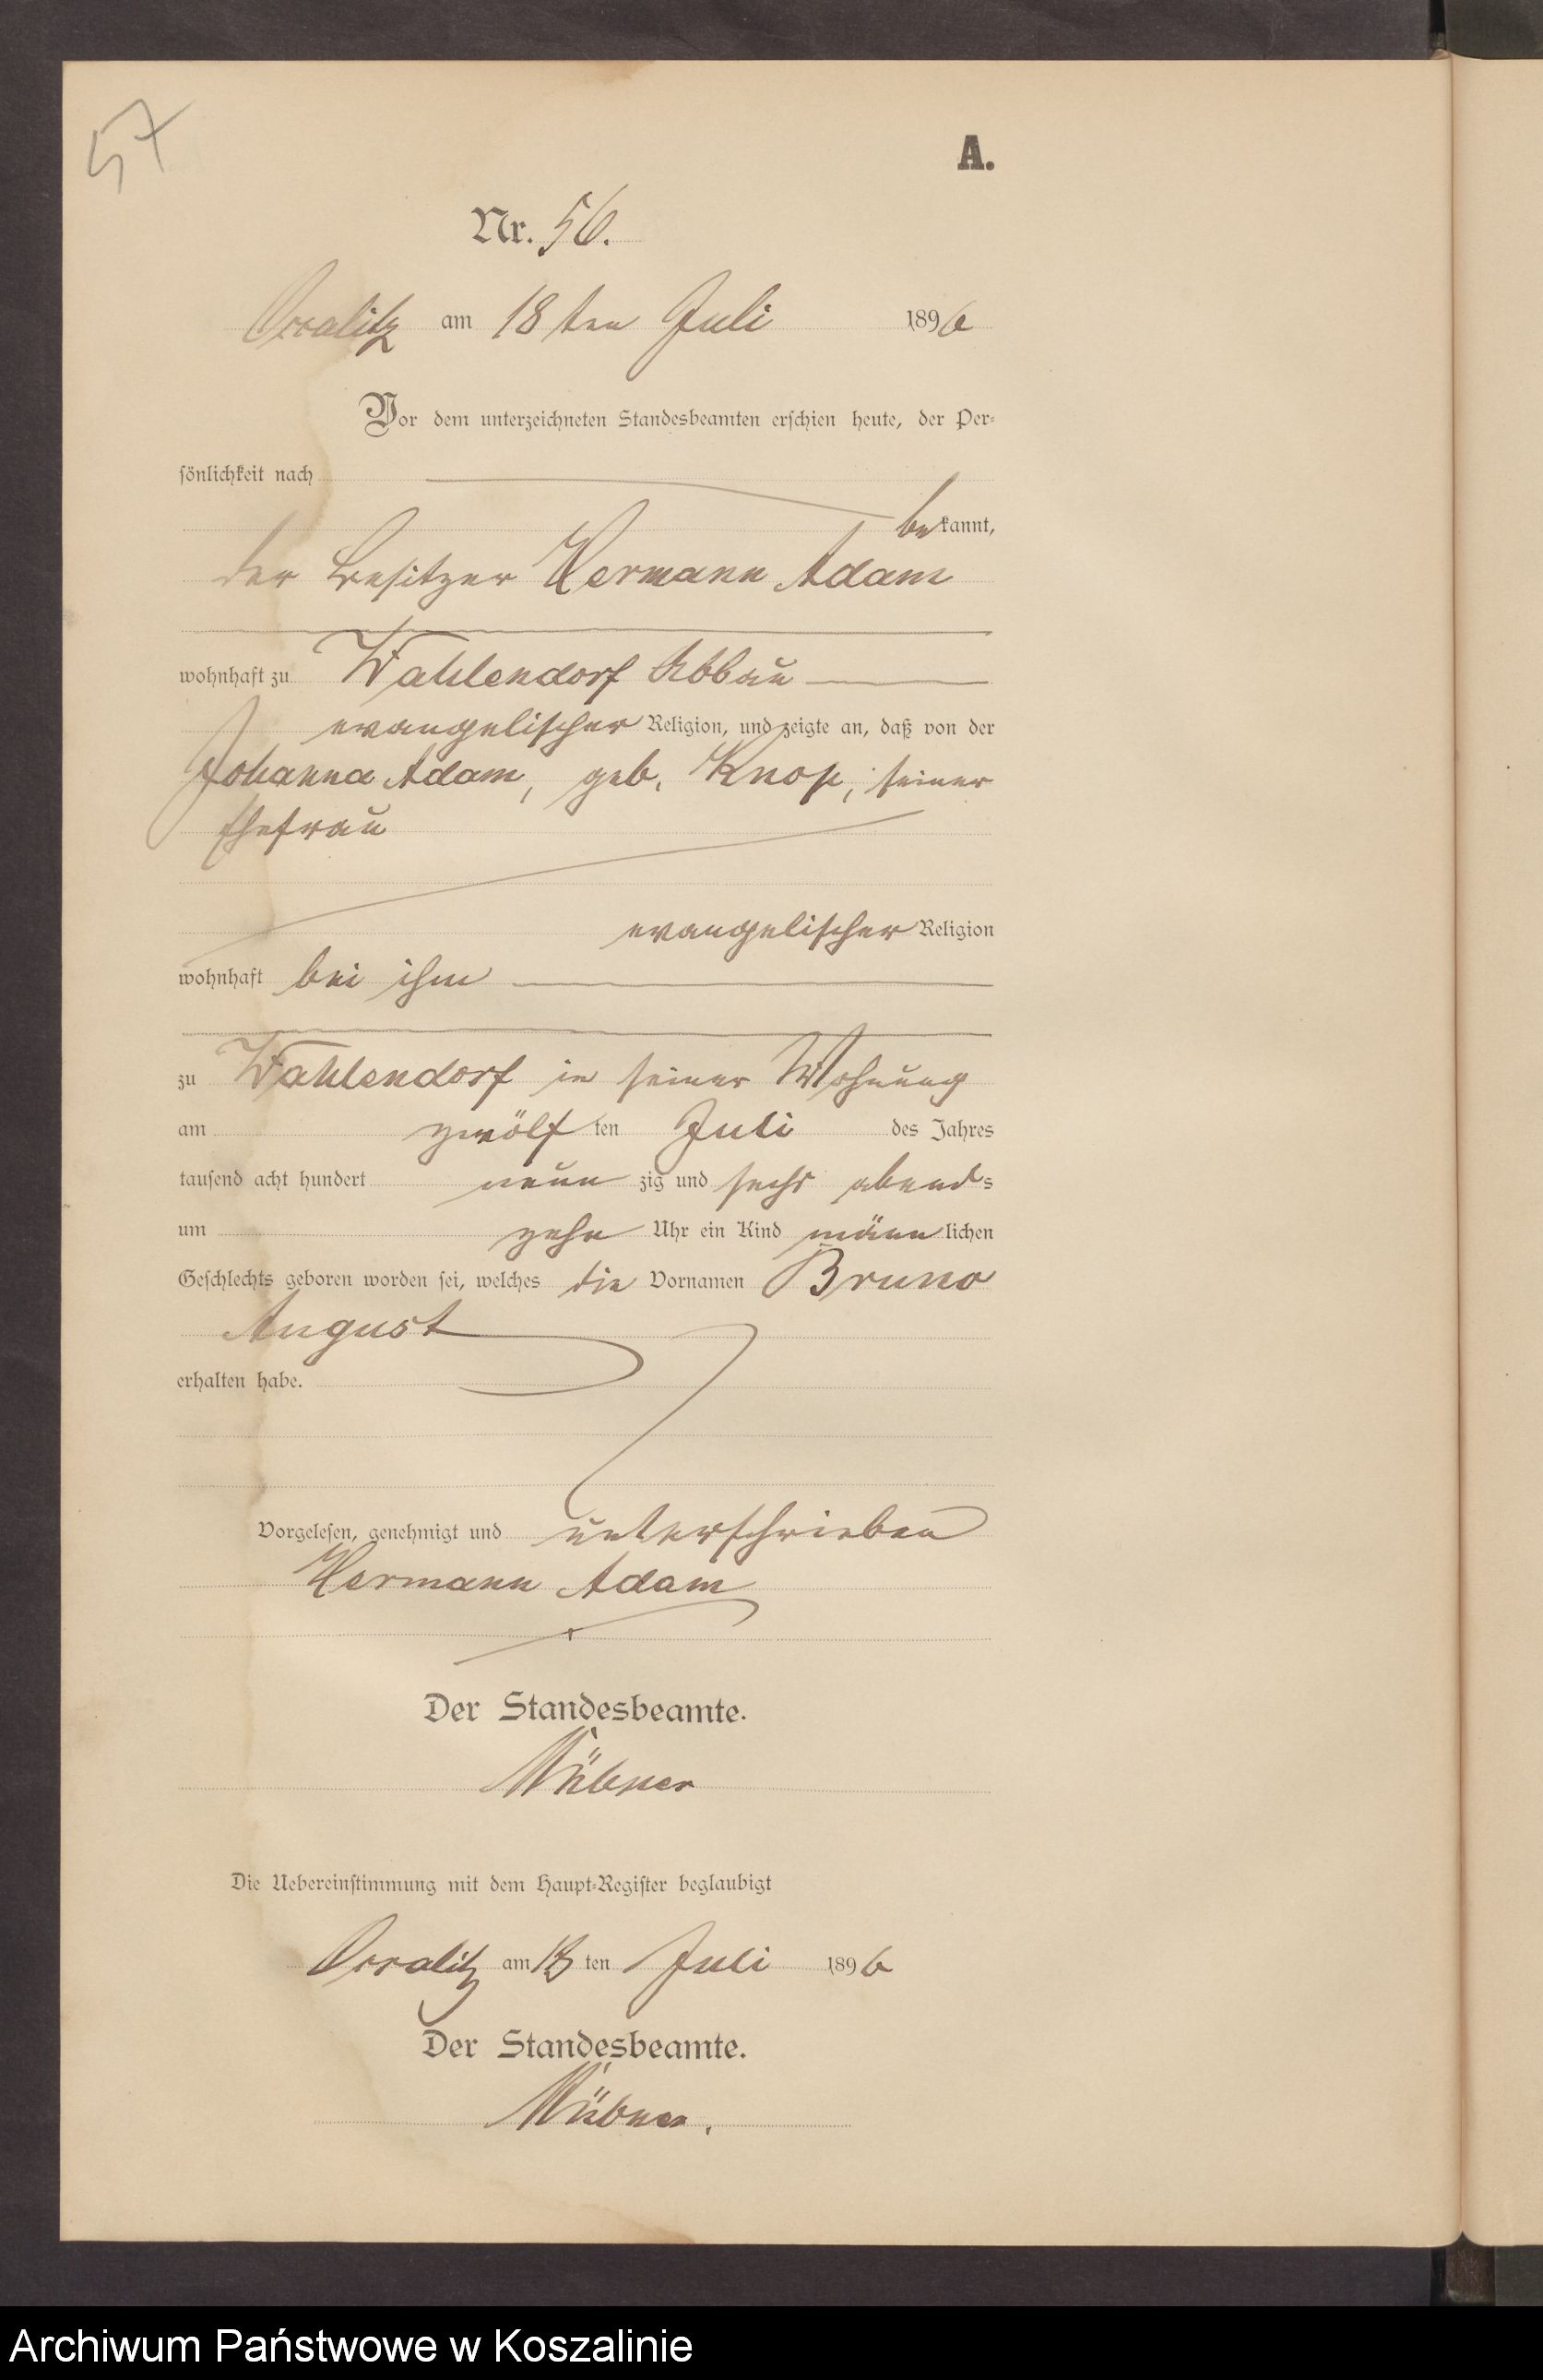 57
A.
Nr. 56.
Oxalitz am 18 ten Juli 1896
Vor dem unterzeichneten Standesbeamten erschien heute, der Per-
sönlichkeit nach
bekannt,
der Besitzer Hermann Adam
wohnhaft zu Wahlendorf Abbau
evangelischer Religion, und zeigte an, daß von der
Johanna Adam, geb. Knop, seiner
Ehefrau
evangelischer Religion
wohnhaft bei ihm
zu Wahlendorf in seiner Wohnung
am zwölf ten Juli des Jahres
tausend acht hundert neun zig und sechs abends
um zehn Uhr ein Kind männlichen
Geschlechts geboren worden sei, welches die Vornamen Bruno
August
erhalten habe.
Vorgelesen, genehmigt und unterschrieben
Hermann Adam
Der Standesbeamte.
Die Uebereinstimmung mit dem Haupt-Register beglaubigt
am 18 ten Juli 1896
Der Standesbeamte.
Archiwum Państwowe w Koszalinie